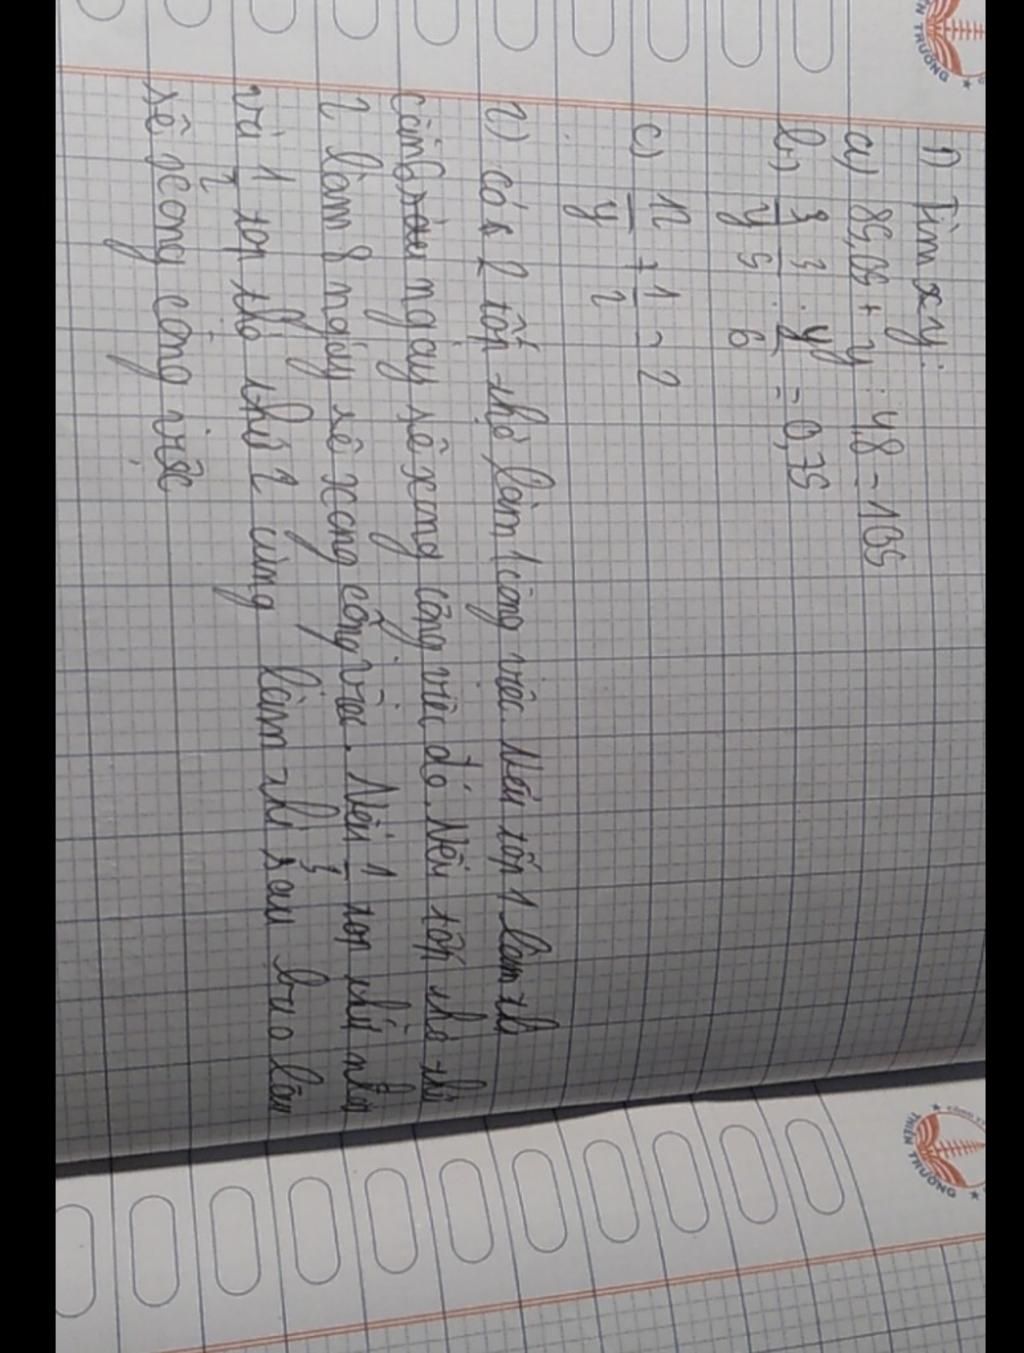 1) Tìm x y:
a) 85,05 + y : 4,8 = 105
b) 3/y 3/5 . y/6 = 0,75
c) 12/y + 1/2 = 2
2) có 2 tốp thợ làm 1 công việc. Nếu tốp 1 làm thì
cần 6 ngày sẽ xong công việc đó. Nếu tốp thợ thứ
2 làm 8 ngày sẽ xong công việc. Nếu 1/3 tốp thứ nhất
và 1/2 tốp thợ thứ 2 cùng làm thì sau bao lâu
sẽ xong công việc
THIEN TRUONG
THIEN TRUONG